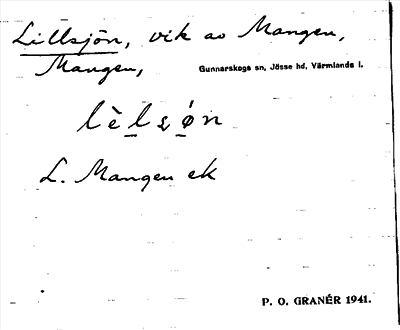 Lillsjön, vik av Mangen,
Mangen, Gunnarskogs sn, Jösse hd, Värmlands l.
lèlsøn
L. Mangen ek
P. O. GRANÉR 1941.